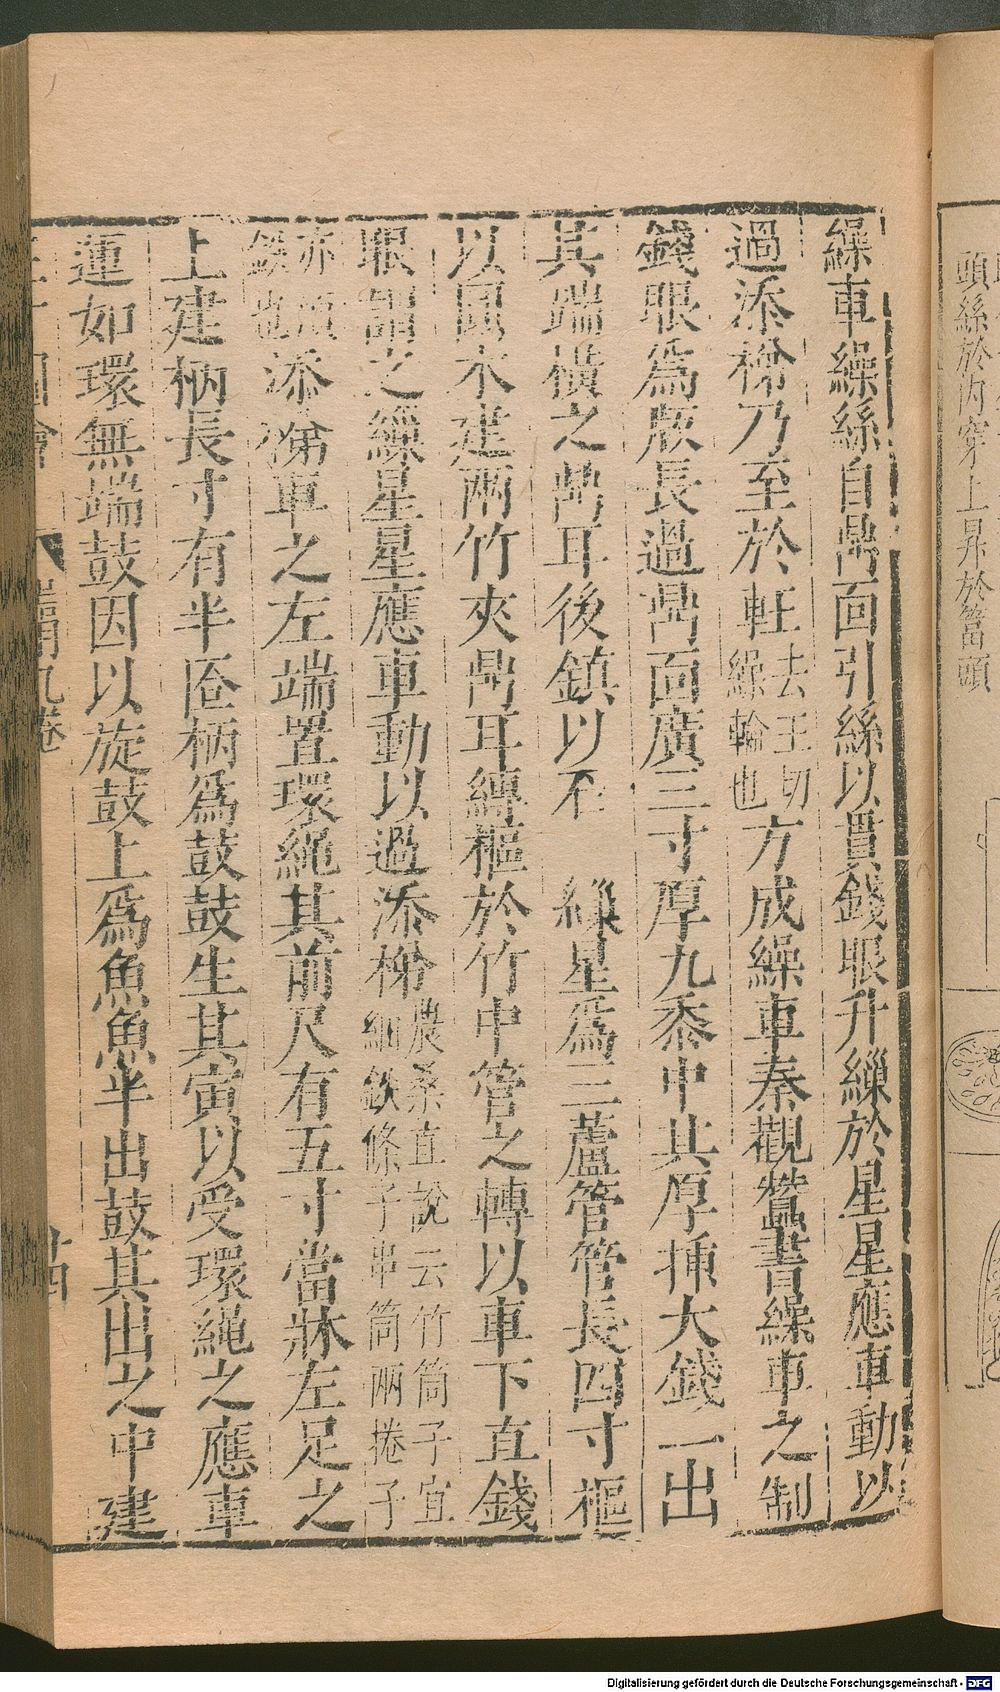 繰車繰絲自鼎面引絲以貫錢眼升繅於星星應車動以
過添梯乃至於軖去王切繰輪也方成繰車秦觀蠶書繰車之制
錢眼爲版長過鼎面廣三寸厚九黍中其厚揷大錢一出
其端橫之鼎耳後鎮以不 繅星爲三蘆管管長四寸樞
以圓木建兩竹夾鼎耳縳樞於竹中管之轉以車下直錢
眼謂之繅星星應車動以過添梯農桑直說云竹筒子宜細鉄條子串筒兩捲子
亦須鉄也添梯車之左端置環繩其前尺有五寸當牀左足之
上建柄長寸有半匼柄爲鼓鼓生其寅以受環繩之應車
運如環無端鼓因以旋鼓上爲魚魚半出鼓其出之中建
圖會 器用九卷 十四
頭絲於內穿上昇於篙頭
Digitalisierung gefördert durch die Deutsche Forschungsgemeinschaft - DFG